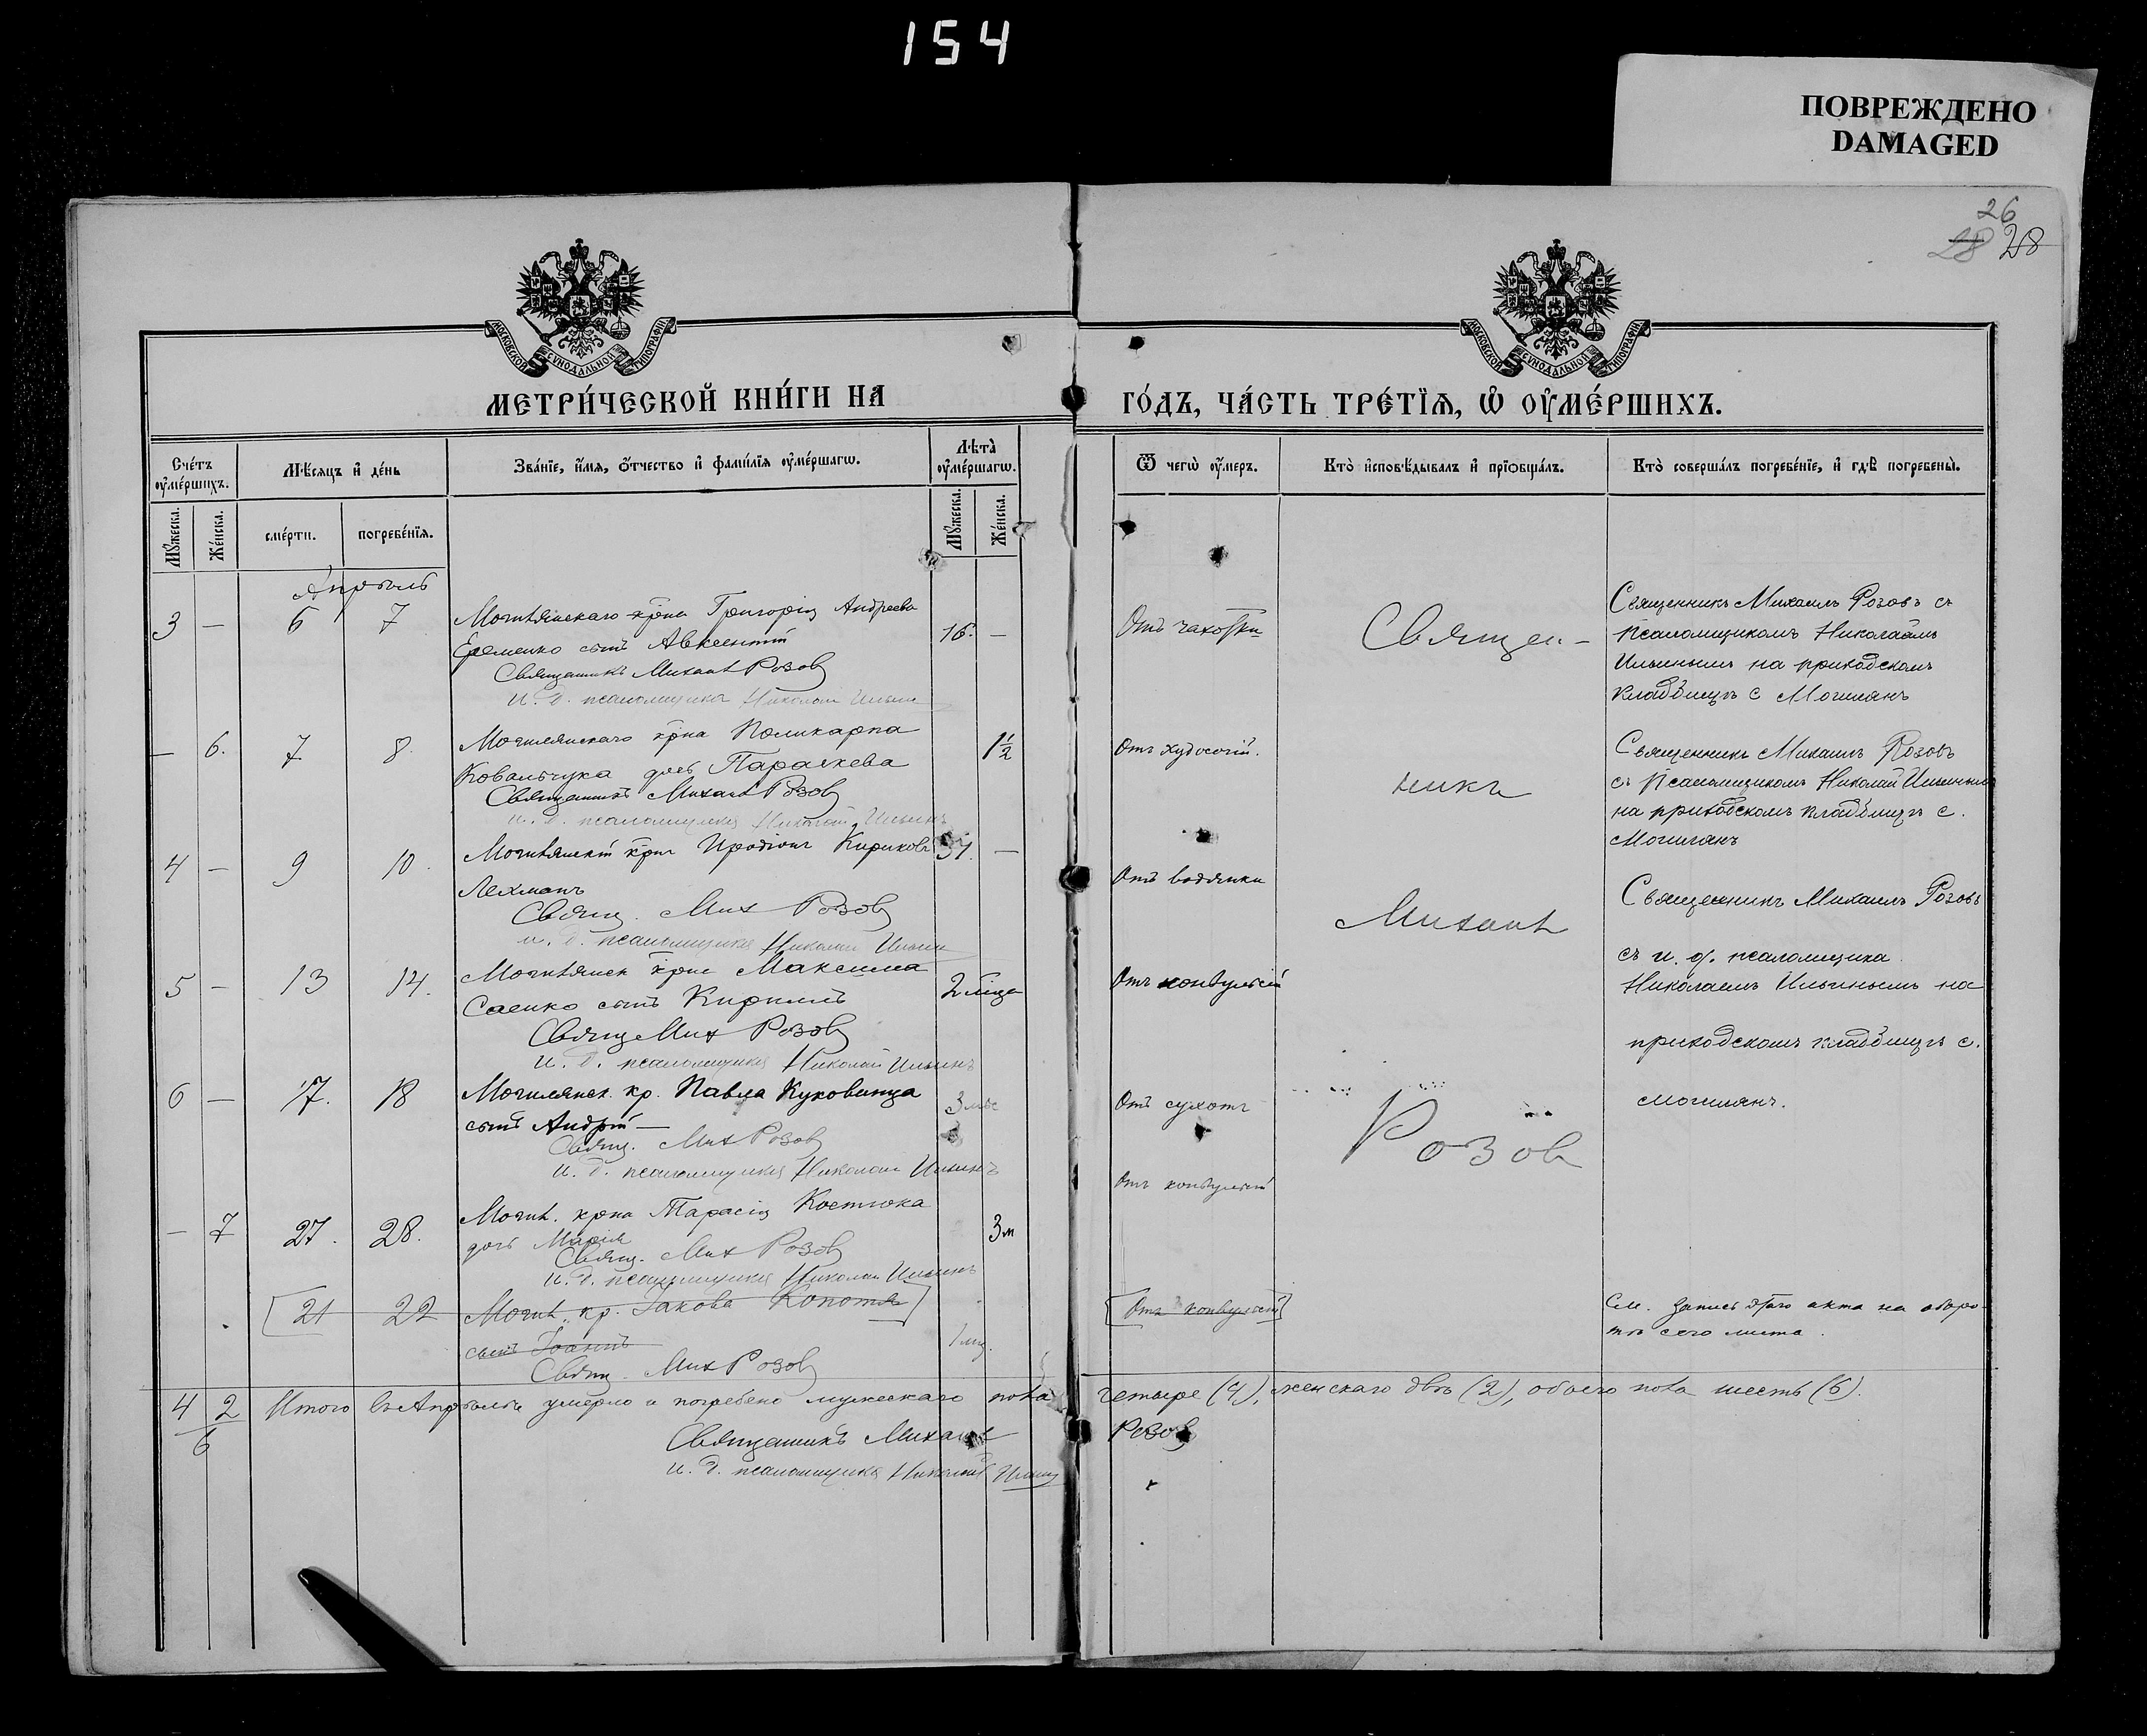 154
ПОВРЕЖДЕНО
DAMAGED
26
28 28
МОСКОВСКОЙ СѴНОДАЛЬНОЙ ТИПОГРАФІИ
МОСКОВСКОЙ СѴНОДАЛЬНОЙ ТИПОГРАФІИ
МЕТРИ́ЧЕСКОЙ КНИ́ГИ НА
ГО́ДЪ, ЧА́СТЬ ТРЕ́ТЇѦ, Ѡ҆ ОУ҆МЕ́РШИХЪ.
Сче́тъ оу҆ме́ршихъ.
Мѣ́сѧцъ и҆ де́нь
Зва́нїе, и҆́мѧ, ѻ҆́тчество и҆ фами́лїѧ оу҆ме́ршагѡ.
Лѣ́та оу҆ме́ршагѡ.
Ѿ чегѡ̀ оу҆́меръ.
Кто̀ и҆сповѣ́дывалъ и҆ прїѡбща́лъ.
Кто̀ соверша́лъ погребе́нїе, и҆ гдѣ̀ погребены̀.
Мꙋ́жеска.
Же́нска.
сме́рти.
погребе́нїѧ.
Мꙋ́жеска.
Же́нска.
Апрѣль
3 — 6 7 Могилянскаго крна Григорія Андреева
Еременко сынъ Авксентій
16. —
Священникъ Михаилъ Розовъ
и. д. псаломщика Николай Ильинъ
Отъ чахотки
Священ-
Священникъ Михаилъ Розовъ съ
псаломщикомъ Николаемъ
Ильинымъ на приходскомъ
кладбищѣ с Могилянъ
— 6. 7 8. Могилянскаго крна Поликарпа
Ковальчука дочь Параскева
1½
Священникъ Михаилъ Розовъ
и. д. псаломщика Николай Ильинъ
Отъ худосочія.
никъ
Священникъ Михаилъ Розовъ
съ псаломщикомъ Николай Ильинымъ
на приходскомъ кладбищѣ с.
Могилянъ
4 — 9 10. Могилянскій крнъ Иродіонъ Кириковъ
Лехманъ
51. —
Свящ. Мих Розовъ
и. д. псаломщика Николай Ильинъ
Отъ водянки
Михаилъ
Священникъ Михаилъ Розовъ
съ и. д. псаломщика
Николаемъ Ильинымъ на
приходскомъ кладбищѣ с.
Могилянъ.
5 — 13 14. Могилянск крна Максима
Саенко сынъ Кириллъ
2 мца
Свящ Мих Розовъ
и. д. псаломщика Николай Ильинъ
Отъ конвульсій
6 — 17. 18 Могилянск. кр. Павла Куковинца
сынъ Андрій —
3 мѣс
Свящ. Мих Розовъ
и. д. псаломщика Николай Ильинъ
Отъ сухотъ
Розовъ
— 7 27. 28. Могил. крна Тарасія Костюка
дочь Марія
3 м
Свящ. Мих Розовъ
и. д. псаломщика Николай Ильинъ
Отъ конвульсій
[21 22 Могил. кр. Іакова Копотя]
сынъ Іоаннъ
1 мц.
Свящ. Мих Розовъ
[Отъ конвульсій]
См. запись этого акта на оборо-
тѣ сего листа.
4 2 Итого въ Апрѣлѣ умерло и погребено мужескаго пола четыре (4), женскаго двѣ (2), обоего пола шесть (6).
6
Священникъ Михаилъ Розовъ
и. д. псаломщика Николай Ильинъ